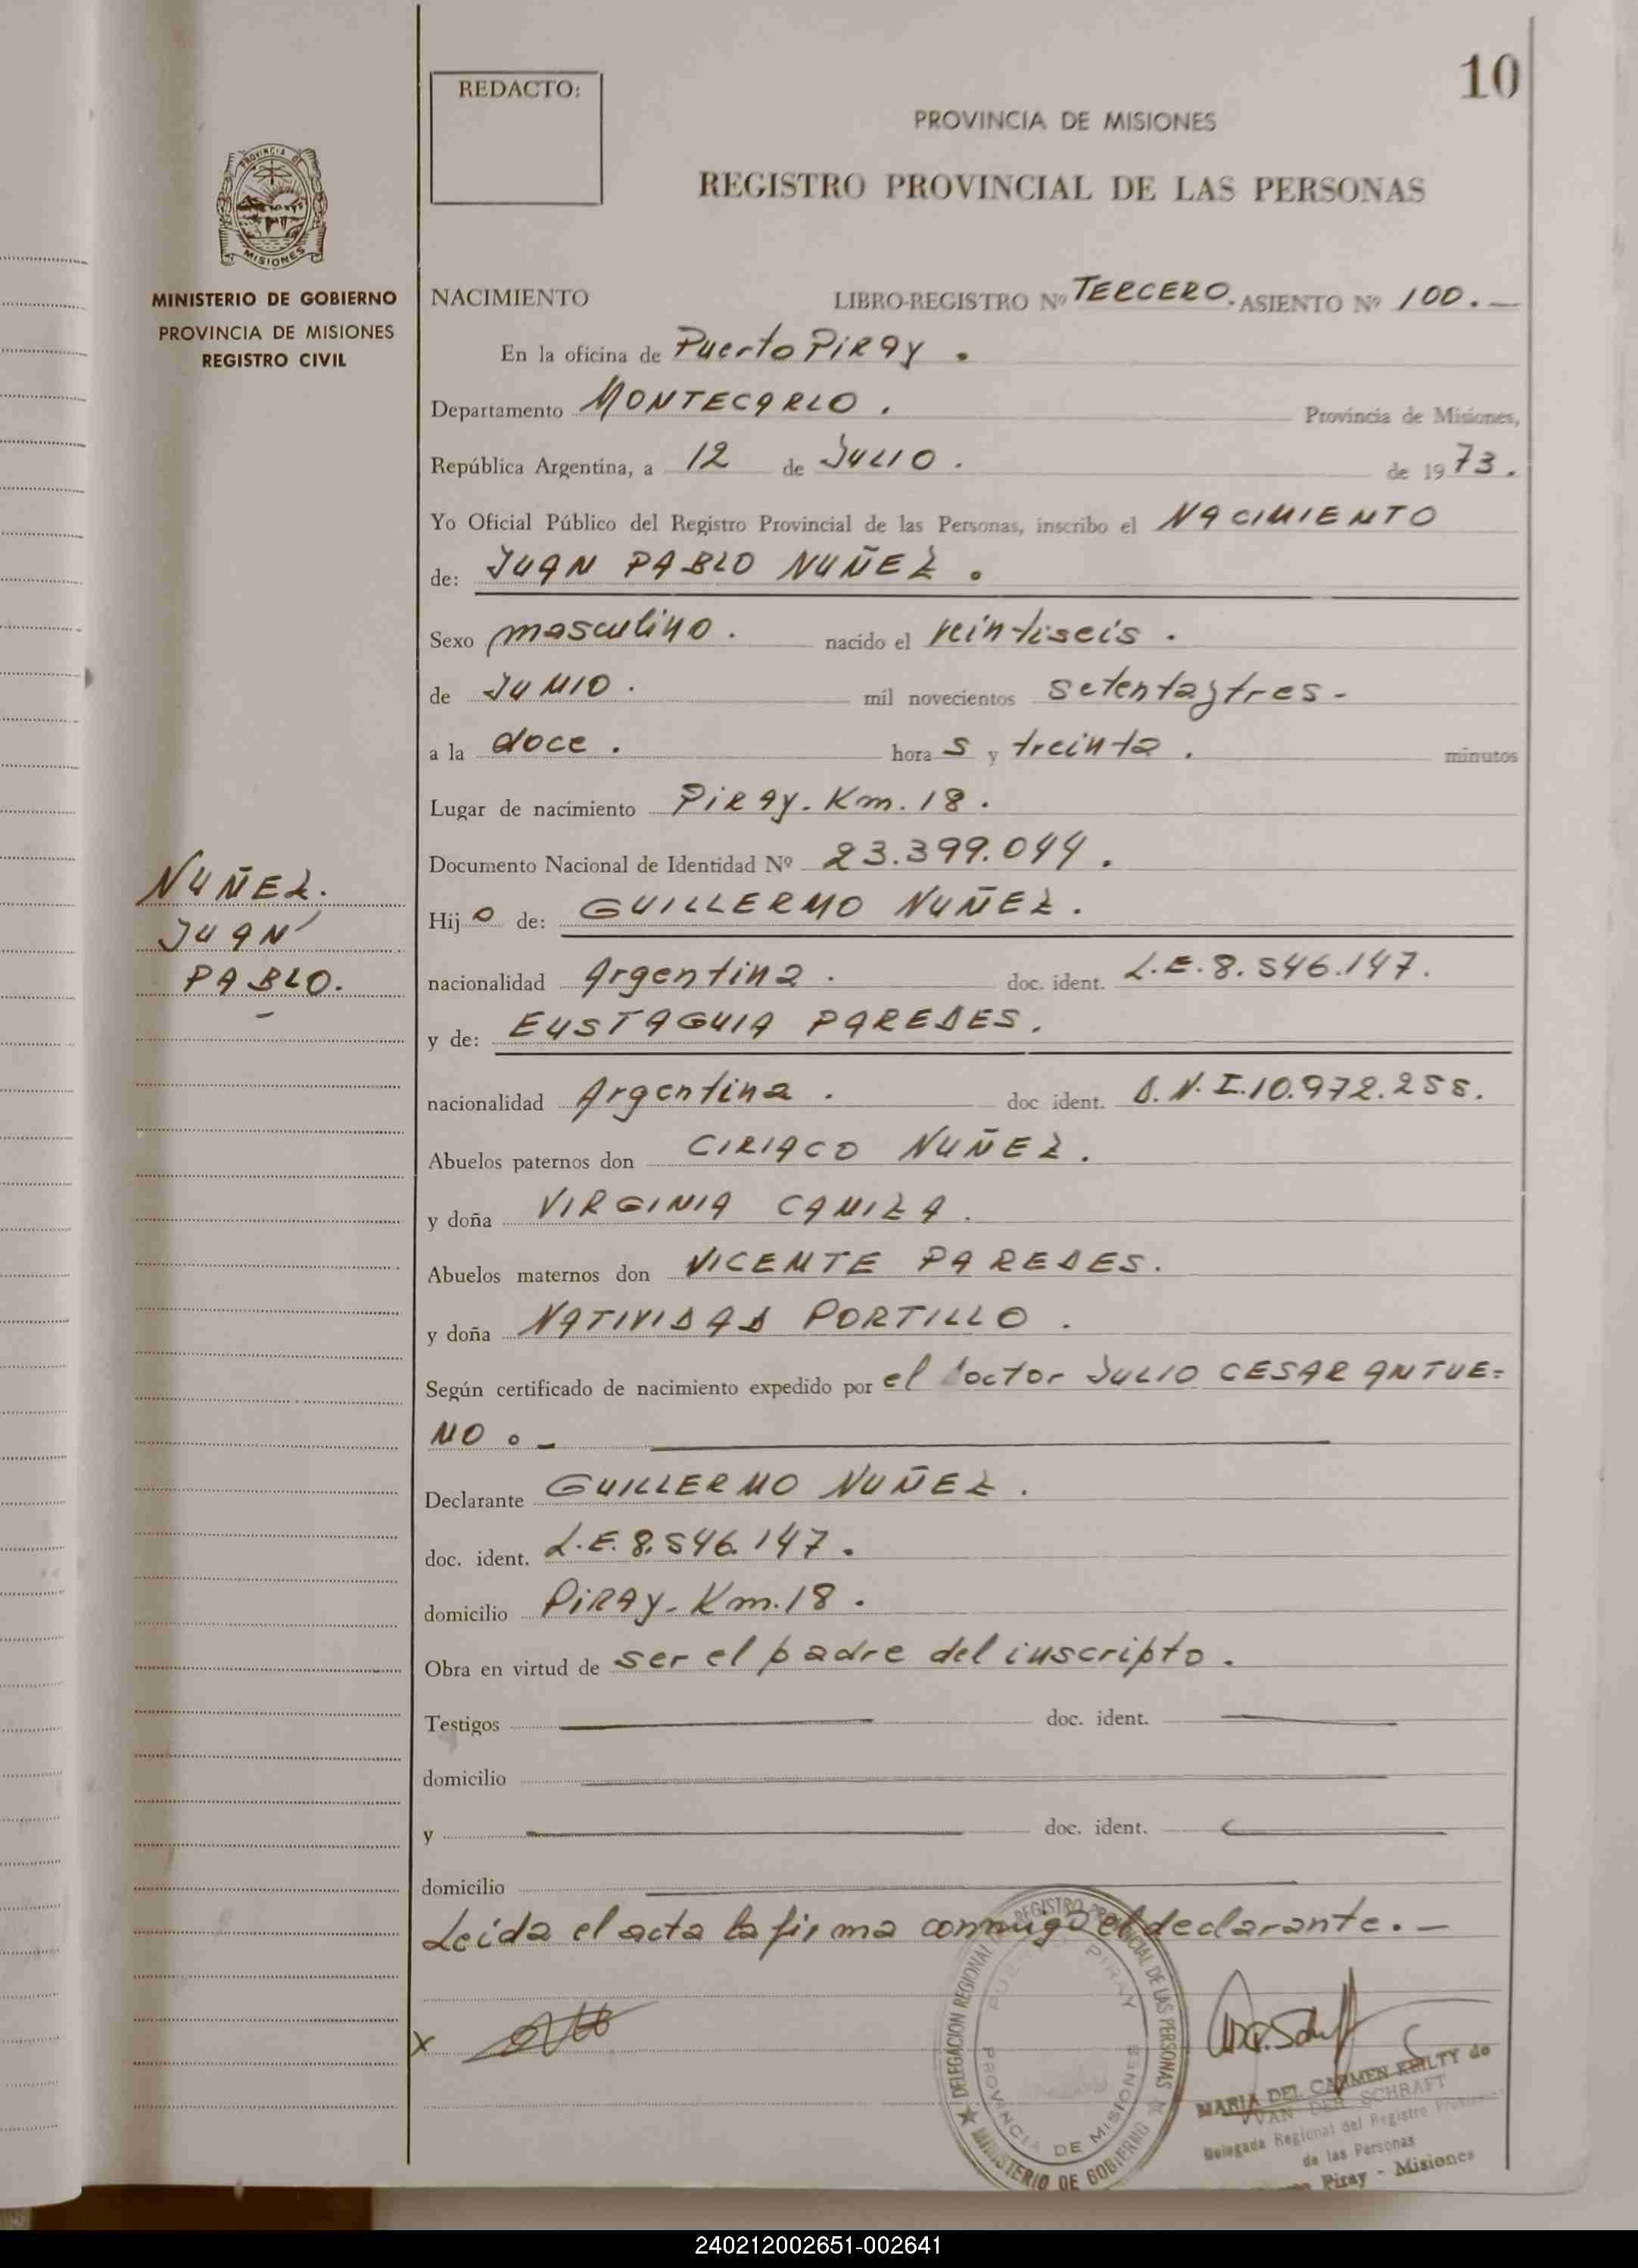 10
REDACTO:
PROVINCIA DE MISIONES
REGISTRO PROVINCIAL DE LAS PERSONAS
PROVINCIA DE
MISIONES
MINISTERIO DE GOBIERNO
PROVINCIA DE MISIONES
REGISTRO CIVIL
NACIMIENTO LIBRO-REGISTRO Nº TERCERO. ASIENTO Nº 100.-
En la oficina de Puerto PiRAy.
Departamento MONTECARLO. Provincia de Misiones,
República Argentina, a 12 de JULIO. de 1973.
Yo Oficial Público del Registro Provincial de las Personas, inscribo el NACIMIENTO
de: JUAN PABLO NUÑEZ.
Sexo masculino. nacido el veintiseis.
de JUNIO. mil novecientos setentaytres-
a la doce. hora s y treinta. minutos
Lugar de nacimiento PiRAy-Km.18.
Documento Nacional de Identidad Nº 23.399.044.
NUÑEZ.
JUAN
PABLO.
Hijo de: GUILLERMO NUÑEZ.
nacionalidad Argentina. doc. ident. L.E.8.546.147.
y de: EUSTAGUIA PAREDES.
nacionalidad Argentina. doc ident. D.N.I.10.972.258.
Abuelos paternos don CIRIACO NUÑEZ.
y doña VIRGINIA CAMIZA.
Abuelos maternos don VICENTE PAREDES.
y doña NATIVIDAD PORTILLO.
Según certificado de nacimiento expedido por el doctor JULIO CESAR ANTUE=
NO.-
Declarante GUILLERMO NUÑEZ.
doc. ident. L.E.8.546.147.
domicilio PiRAy-Km.18.
Obra en virtud de ser el padre del inscripto.
Testigos doc. ident.
domicilio
y doc. ident.
domicilio
Leida el acta la firma conmigo el declarante.-
X
DELEGACION REGIONAL REGISTRO PROVINCIAL DE LAS PERSONAS
MINISTERIO DE GOBIERNO
PUERTO PIRAY
PROVINCIA DE MISIONES
MARIA DEL CARMEN KEILTY de
VAN DER SCHRAFT
Delegada Regional del Registro
de las Personas
Piray - Misiones
240212002651-002641